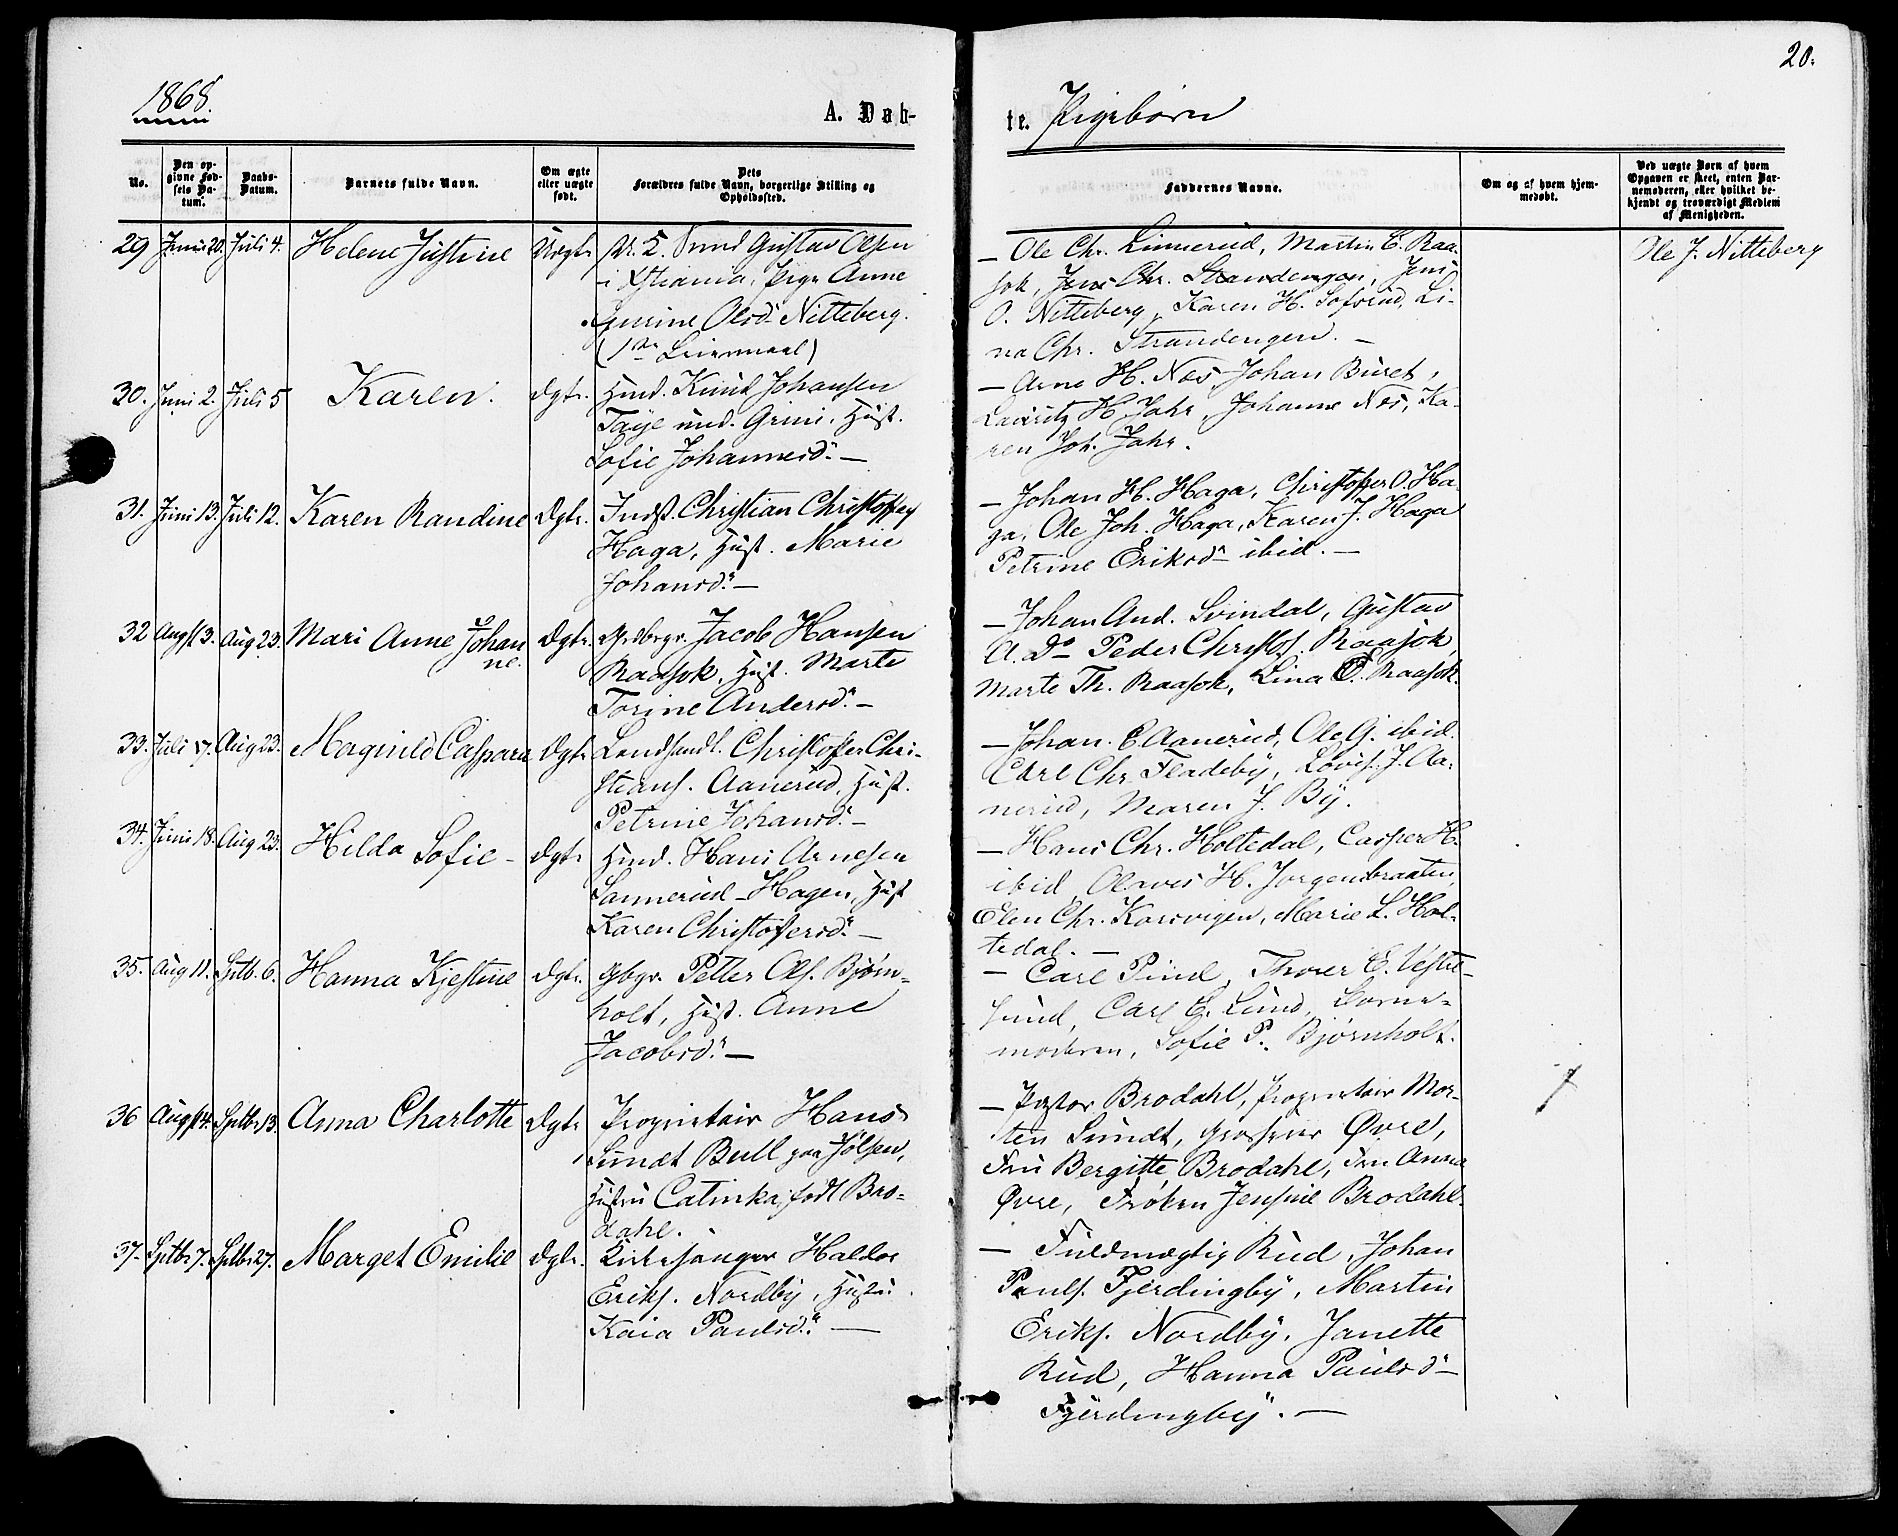 1868.
20.
A. Døb-
te. Pigebørn
No.
Den op-
givne Fød-
sels Da-
tum.
Daabs-
Datum.
Barnets fulde Navn.
Om ægte
eller uægte
født.
Dets
Forældres fulde Navn, borgerlige Stilling og
Opholdssted.
Faddernes Navne.
Om og af hvem hjem-
medøbt.
Ved uægte Børn af hvem
Opgaven er skeet, enten Bar-
nemoderen, eller hvilket be-
kjendt og troværdigt Medlem
af Menigheden.
29 Juni 20. Juli 4. Helene Justine Uægte Gustav Olsen
i Xstiania, Pige Anne
Gurine Olsd. Nitteberg.
(1ste Leiermaal)
– Ole Chr. Linnerud, Martin E. Raa-
sok, Jens Chr. Strandengen, Jens
O. Nitteberg, Karen H. Lofsrud, Li-
na Chr. Strandengen. –
Ole J. Nitteberg
30. Juni 2. Juli 5 Karen. Ægte. Hmd. Knud Johansen
Taije und. Grini, Hust.
Sofie Johannesd. –
– Arne H. Nes, Johan Buret,
Lauritz H. Jahr, Johanne Nes, Ka-
ren Joh. Jahr.
31. Juni 13. Juli 12. Karen Randine Ægte. Indst. Christian Christoffers
Haga, Hust. Marie
Johansd. –
– Johan H. Haga, Christoffer O. Ha-
ga, Ole Joh. Haga, Karen J. Haga
Petrine Eriksd. ibid. –
32 Augst 3. Aug 23. Mari Anne Johan
ne. Ægte. Grdbrgr. Jacob Hansen
Raasok, Hust. Marte
Torine Andersd. –
– Johan And. Svindal, Gustav
A. Do Peder Christofs. Raasok,
Marte Th. Raasok, Lina E. Raasok.
33. Juli 17. Aug 23. Magnild Caspara Ægte Landhandl. Christoffer Chri-
stians. Aanerud, Hust.
Petrine Johansd. –
– Johan. E. Aanerud, Ole G. ibid.
Carl Chr. Fladeby, Lovise J. Aa-
nerud, Maren J. By.
34. Juni 18. Aug 23. Hilda Sofie – Ægte Hmd. Hans Arnesen
Sannerud-Hagen, Hust
Karen Christoffersd. –
– Hans Chr. Holtedal, Casper H.
ibid, Olaves H. Jørgensbraaten,
Elen Chr. Korsvigen, Marie L. Hol-
tedal. –
35. Aug 11. Sptb. 6. Hanna Kjestine Ægte. Gbgr. Petter Ols. Bjørn-
holt, Hust. Anne
Jacobsd. –
– Carl Pind, Thorer E. Vestre-
Lund, Carl E. Lund, Barne-
moderen, Sofie P. Bjørnholt.
36 Augst 4. Sptbr 13. Anna Charlotte Ægte Proprietair Hans
Sundt Bull paa Jølsen,
Hustru Catinka, født Bro-
dahl.
– Pastor Brodahl, Proprietair Mor-
ten Sundt, Grosserer Øvre,
Fru Bergitte Brodahl, Fru Anna
Øvre, Frøken Jensine Brodahl.
37. Sptbr 7. Sptbr 27. Marget Emilie Ægte. Kirkesanger Haldor
Eriks. Nordby, Hustru
Kaia Paulsd. –
– Fuldmægtig Rud, Johan
Pauls. Fjerdingby, Martin
Eriks. Nordby, Janette
Rud, Hanna Paulsd –
Fjerdingby. –